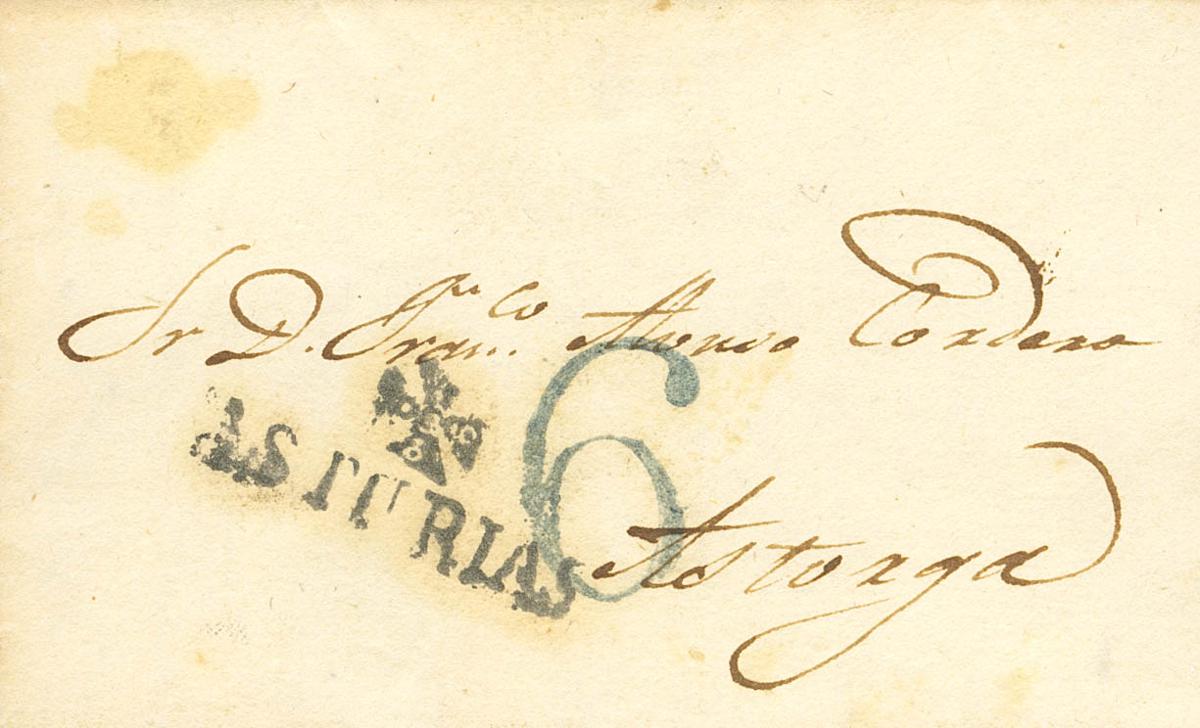 Sr D. Fran.co Alonso Cordero
ASTURIAS
6
Astorga